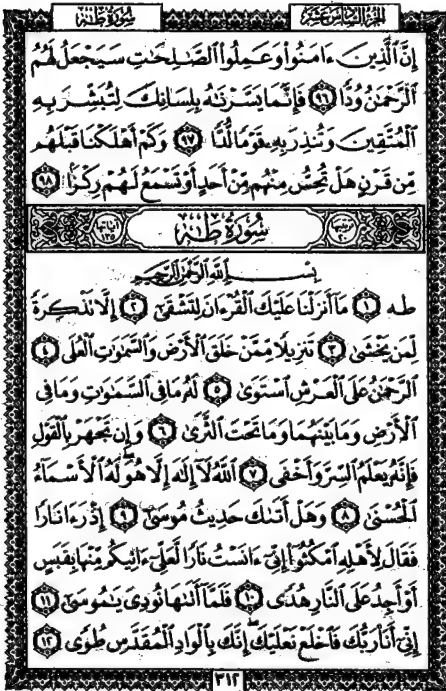 الجزء السادس عشر
سورة طه
إِنَّ ٱلَّذِينَ ءَامَنُوا۟ وَعَمِلُوا۟ ٱلصَّـٰلِحَـٰتِ سَيَجْعَلُ لَهُمُ
ٱلرَّحْمَـٰنُ وُدًّا ٩٦ فَإِنَّمَا يَسَّرْنَـٰهُ بِلِسَانِكَ لِتُبَشِّرَ بِهِ
ٱلْمُتَّقِينَ وَتُنذِرَ بِهِۦ قَوْمًا لُّدًّا ٩٧ وَكَمْ أَهْلَكْنَا قَبْلَهُم
مِّن قَرْنٍ هَلْ تُحِسُّ مِنْهُم مِّنْ أَحَدٍ أَوْ تَسْمَعُ لَهُمْ رِكْزًۢا ٩٨
سُورَةُ طه
بِسْمِ ٱللَّهِ ٱلرَّحْمَـٰنِ ٱلرَّحِيمِ
طه ١ مَآ أَنزَلْنَا عَلَيْكَ ٱلْقُرْءَانَ لِتَشْقَىٰٓ ٢ إِلَّا تَذْكِرَةً
لِّمَن يَخْشَىٰ ٣ تَنزِيلًا مِّمَّنْ خَلَقَ ٱلْأَرْضَ وَٱلسَّمَـٰوَٰتِ ٱلْعُلَى ٤
ٱلرَّحْمَـٰنُ عَلَى ٱلْعَرْشِ ٱسْتَوَىٰ ٥ لَهُۥ مَا فِى ٱلسَّمَـٰوَٰتِ وَمَا فِى
ٱلْأَرْضِ وَمَا بَيْنَهُمَا وَمَا تَحْتَ ٱلثَّرَىٰ ٦ وَإِن تَجْهَرْ بِٱلْقَوْلِ
فَإِنَّهُۥ يَعْلَمُ ٱلسِّرَّ وَأَخْفَى ٧ ٱللَّهُ لَآ إِلَـٰهَ إِلَّا هُوَ لَهُ ٱلْأَسْمَآءُ
ٱلْحُسْنَىٰ ٨ وَهَلْ أَتَىٰكَ حَدِيثُ مُوسَىٰٓ ٩ إِذْ رَءَا نَارًا
فَقَالَ لِأَهْلِهِ ٱمْكُثُوٓا۟ إِنِّىٓ ءَانَسْتُ نَارًا لَّعَلِّىٓ ءَاتِيكُم مِّنْهَا بِقَبَسٍ
أَوْ أَجِدُ عَلَى ٱلنَّارِ هُدًى ١٠ فَلَمَّآ أَتَىٰهَا نُودِىَ يَـٰمُوسَىٰٓ ١١
إِنِّىٓ أَنَا۠ رَبُّكَ فَٱخْلَعْ نَعْلَيْكَ إِنَّكَ بِٱلْوَادِ ٱلْمُقَدَّسِ طُوًى ١٢
٣١٢